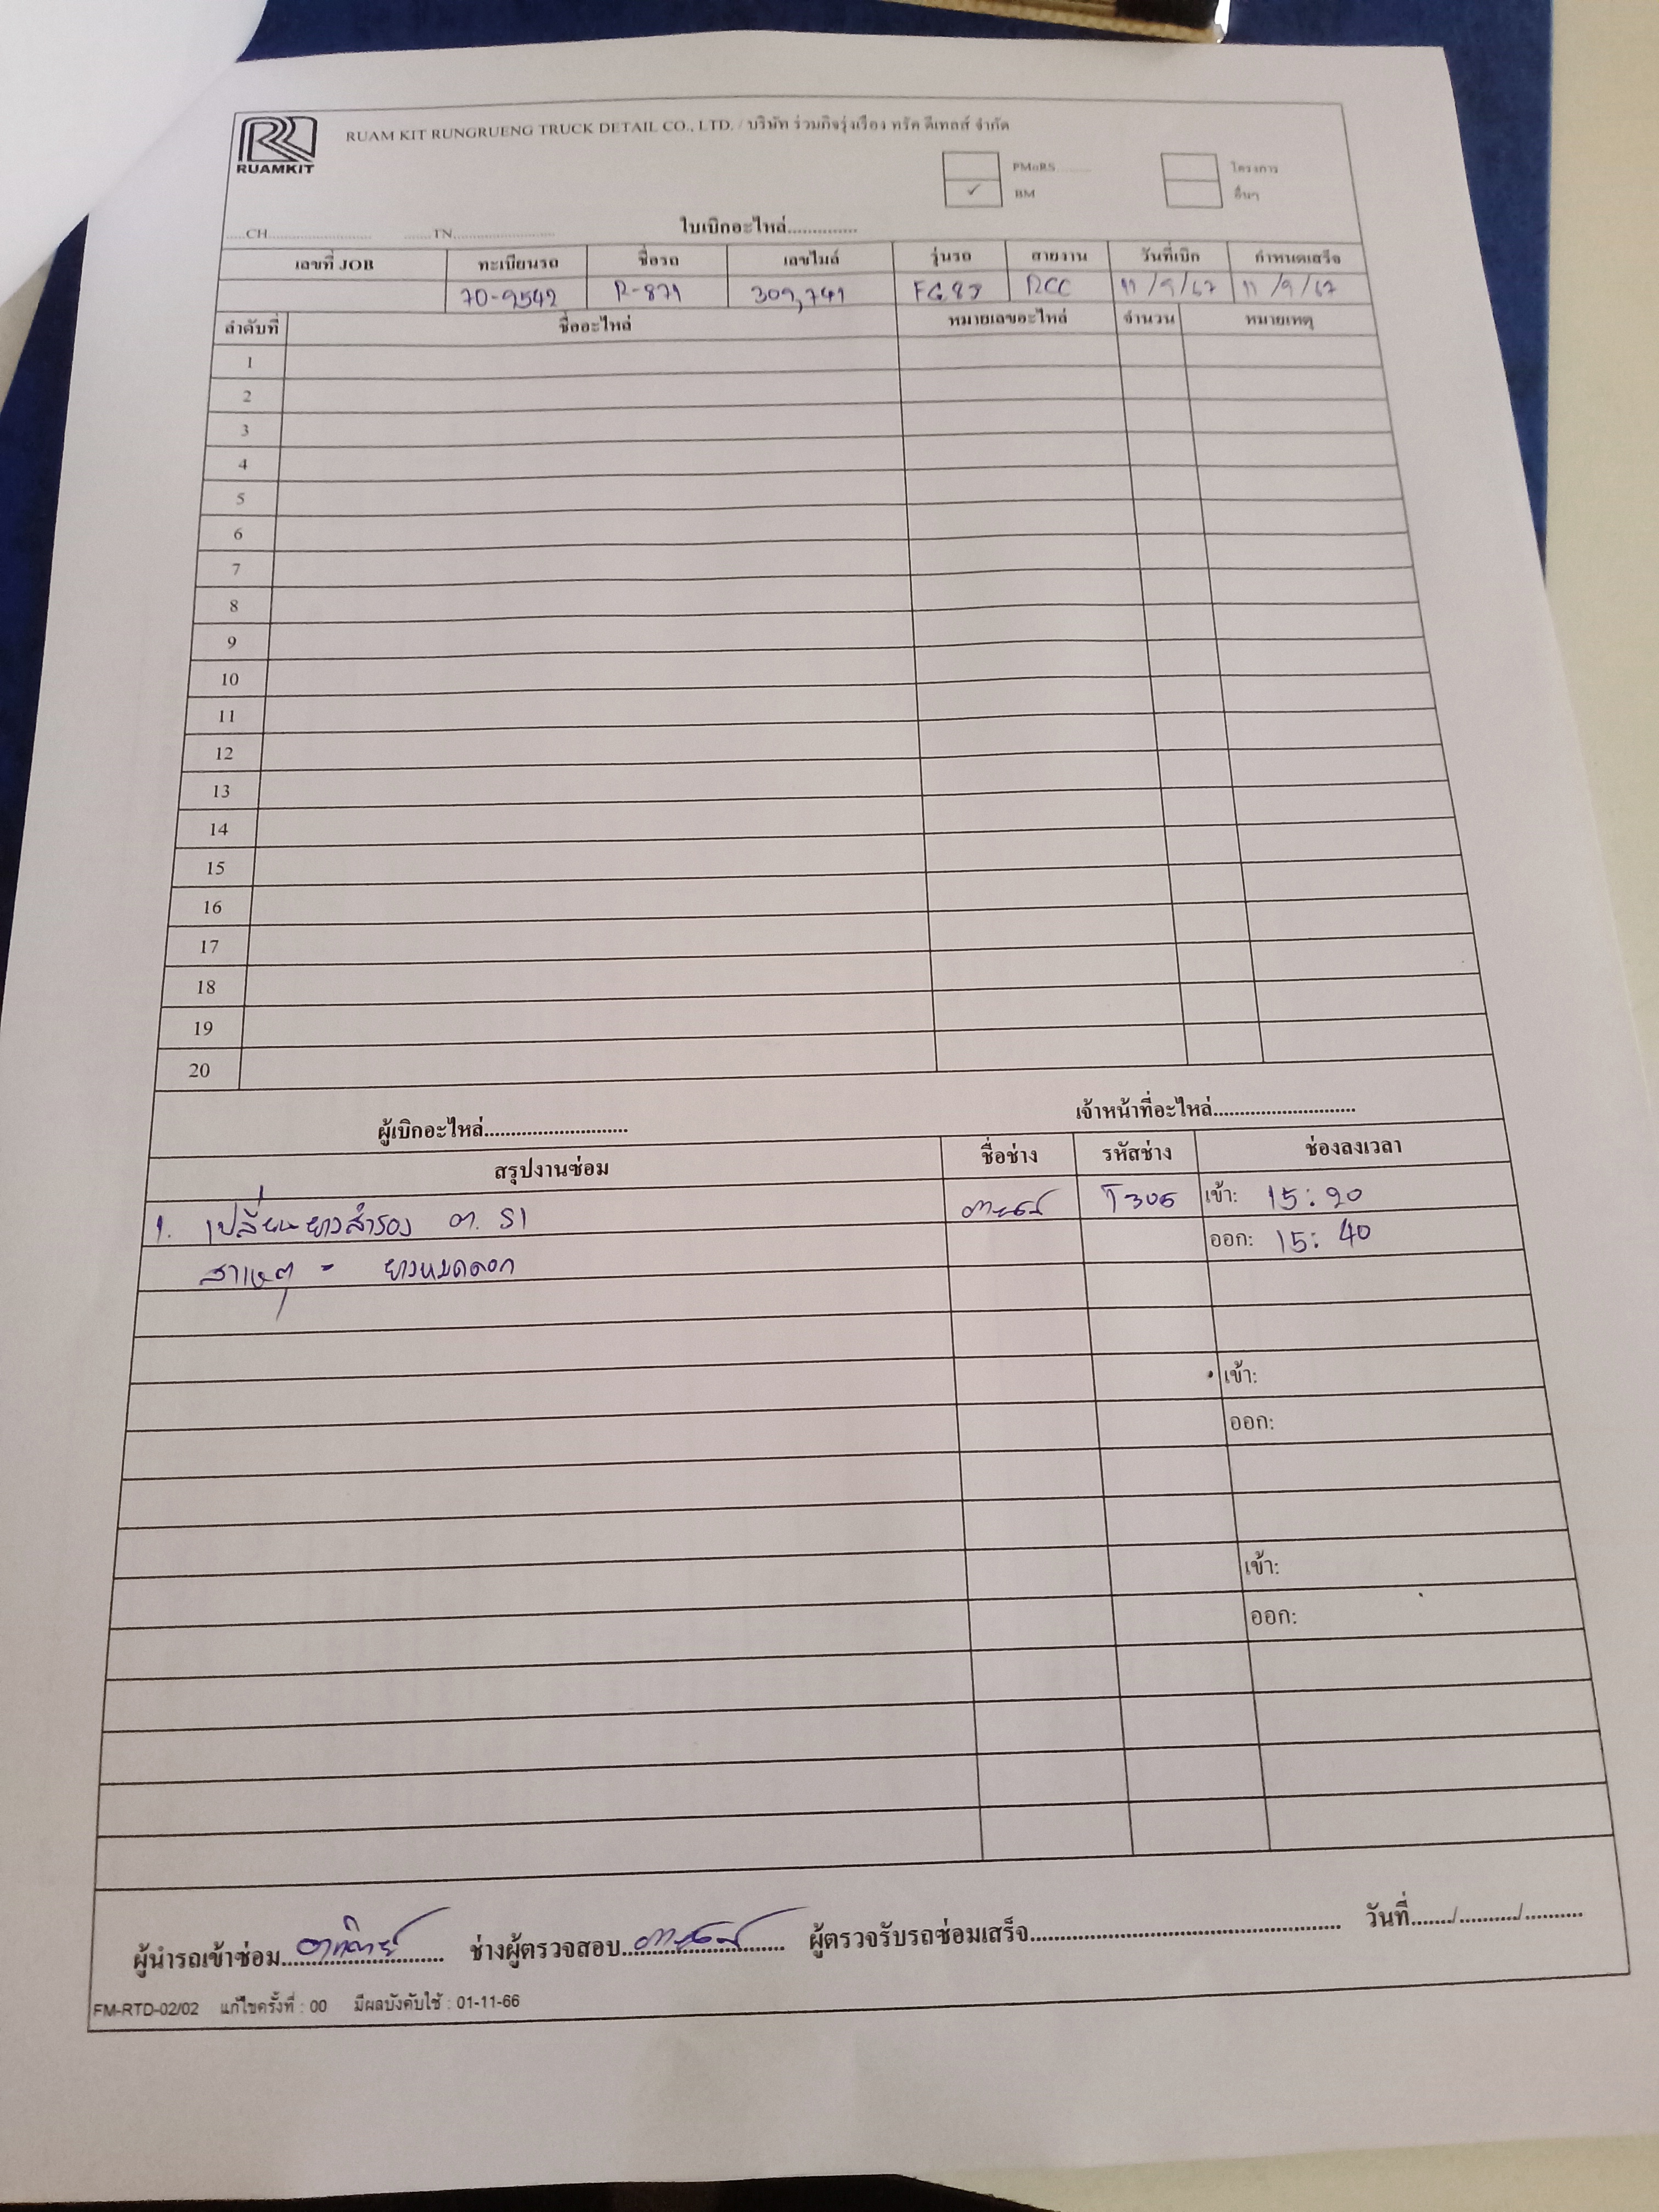 RUAMKIT
RUAM KIT RUNGRUENG TRUCK DETAIL CO., LTD. / บริษัท ร่วมกิจรุ่งเรือง ทรัค ดีเทลส์ จำกัด
PM&RS.......... โครงการ
✓ BM อื่นๆ
.....CH........................ .......TN........................ ใบเบิกอะไหล่..............
เลขที่ JOB ทะเบียนรถ ชื่อรถ เลขไมล์ รุ่นรถ สายงาน วันที่เบิก กำหนดเสร็จ
70-9542 R-871 309,741 FG8J RCC 11/9/67 11/9/67
ลำดับที่ ชื่ออะไหล่ หมายเลขอะไหล่ จำนวน หมายเหตุ
1
2
3
4
5
6
7
8
9
10
11
12
13
14
15
16
17
18
19
20
ผู้เบิกอะไหล่........................... เจ้าหน้าที่อะไหล่...........................
สรุปงานซ่อม ชื่อช่าง รหัสช่าง ช่องลงเวลา
1. เปลี่ยนยางสำรอง ต. S1 T305 เข้า: 15:20
ออก: 15:40
สาเหตุ - ยางหมดดอก
เข้า:
ออก:
เข้า:
ออก:
ผู้นำรถเข้าซ่อม.............................. ช่างผู้ตรวจสอบ.............................. ผู้ตรวจรับรถซ่อมเสร็จ............................................................ วันที่......./.........../...........
FM-RTD-02/02 แก้ไขครั้งที่ : 00 มีผลบังคับใช้ : 01-11-66